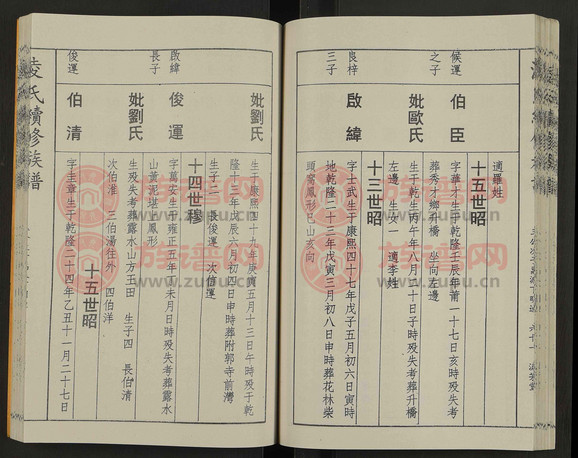 適羅姓
十五世昭
候運
之子
伯臣
字華才生于乾隆壬辰年莆一十七日亥時殁失考
葬秀才鄉升橋 坐向左邊
妣歐氏
生于乾生丙午年八月二十日子時殁失考葬升橋
左邊 生女一 適李姓
十三世昭
良梓
三子
啟緯
字士武生于康熙四十七年戊子五月初六日寅時
地乾隆二十三年戊寅三月初八日申時葬花林柴
頭窩鳳形巳山亥向
妣劉氏
生于康熙四十九年庚寅五月十三日午時殁于乾
隆十三年戊辰六月初四日申時葬附郭寺前灣
生子二 長俊運 次伯運
十四世穆
啟緯
長子
俊運
字萬安生于雍正五年丁未月日時殁失考葬露水
山黄泥堪上鳳形
妣劉氏
生殁失考葬露水山方王田 生子四 長伯清
次伯淮 三伯湯往外 四伯洋
十五世昭
俊運
伯清
字圭章生于乾隆二十四年乙丑十一月二十七日
凌氏續修族譜
族谱网
www.zupu.cn
族谱网
www.zupu.cn